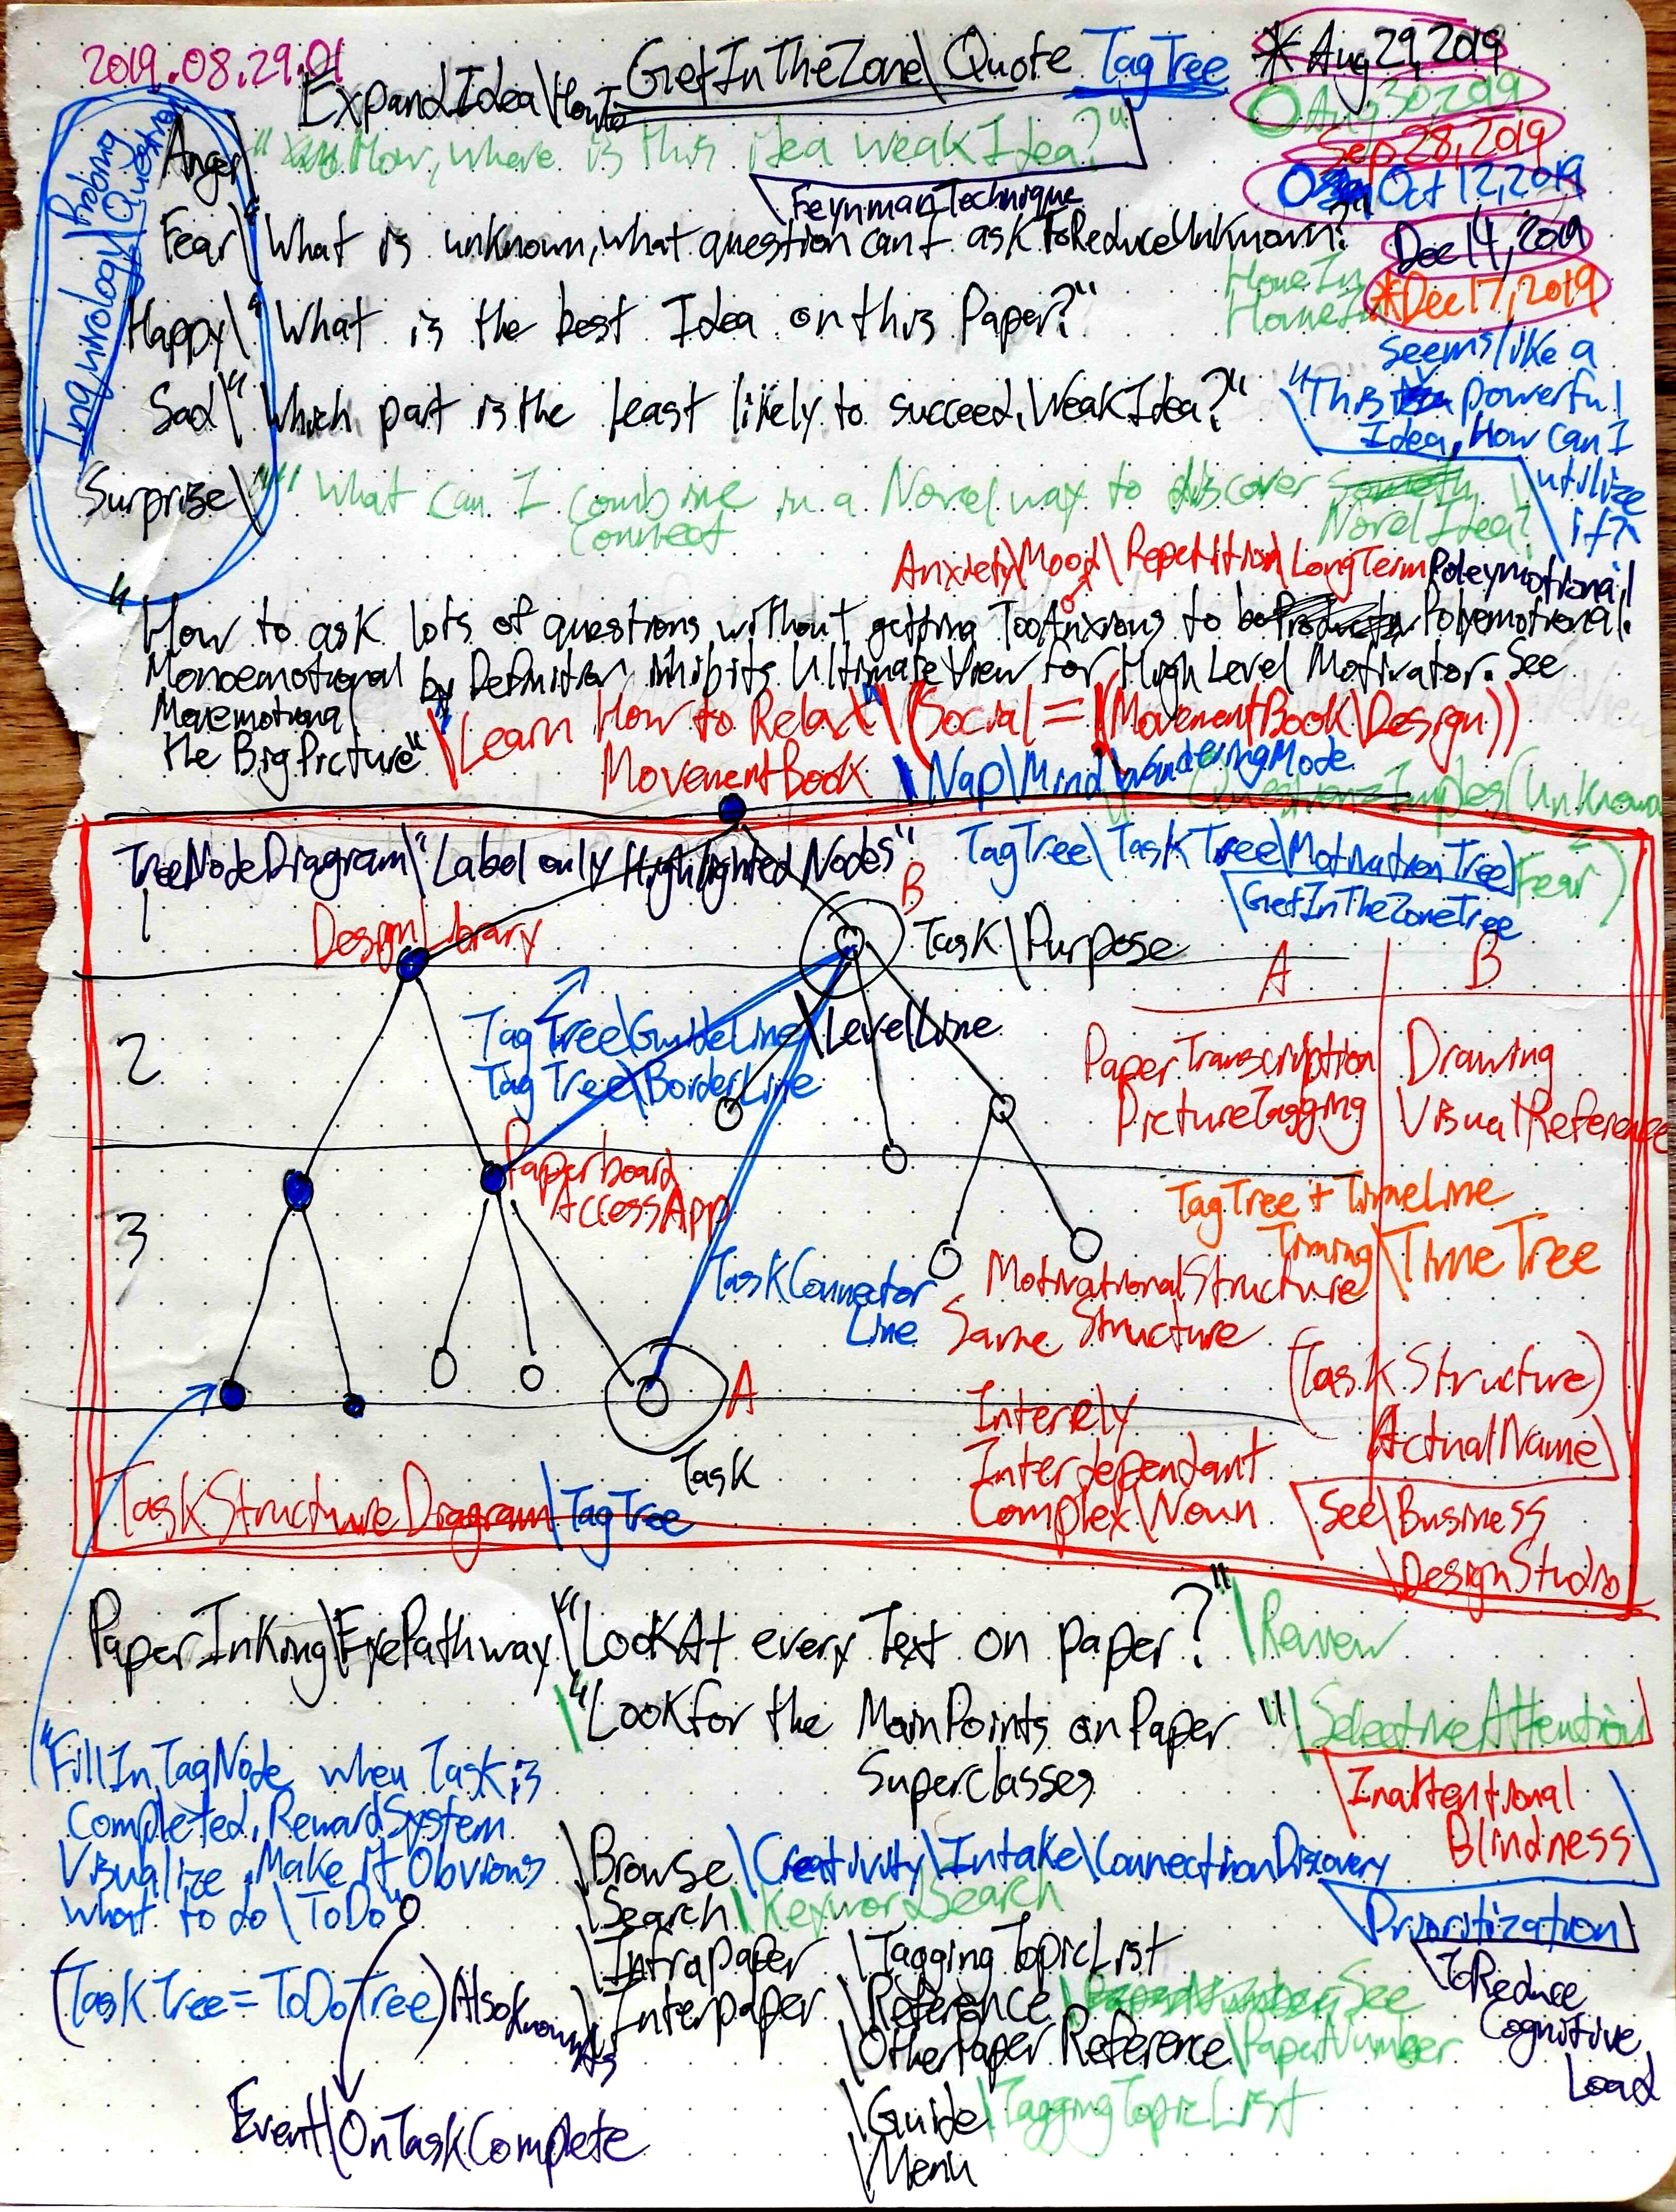 2019.08.29.01
ExpandIdea\HowTo
GetInTheZone\Quote TagTree
*Aug 29, 2019
Aug 30, 2019
Sep 28, 2019
Oct 12, 2019
Dec 14, 2019
*Dec 17, 2019
Inquirology\Probing Question
Anger\"How, where is this idea weakIdea?"
\FeynmanTechnique
Fear\"What is unknown, what question can I ask ToReduceUnknown?"
HoneIn
HomeIn
Happy\"What is the best Idea on this Paper?"
Sad\"Which part is the least likely to succeed, WeakIdea?"
seems like a
"This powerful
Idea, How can I
utilize
it?"
Surprise\"What can I combine in a Novel way to discover
connect
Novel Idea?
Anxiety\Mood\Repetition\LongTerm
Poleymotional
"How to ask lots of questions without getting TooAnxious to be Polyemotional.
Monoemotional by Definition inhibits UltimateView for High Level Motivator. See
Monemotional
the BigPicture"
\Learn How to Relax\(Social=(MovementBook\Design))
MovementBook
\Nap\MindWanderingMode
Question=Implies(Unknown
=
Fear)
TreeNodeDiagram\"Label only Highlighted Nodes"
TagTree\TaskTree\MotivationTree
\GetInTheZoneTree
1
DesignLibrary
B
Task\Purpose
A B
2
TagTree\GuideLine\LevelLine
TagTree\BorderLine
PaperTranscription
PictureTagging
Drawing
VisualReference
3
Paperboard
AccessApp
TagTree + TimeLine
Timing\TimeTree
TaskConnector
Line
MotivationalStructure
Same Structure
(TaskStructure)
ActualName
A
Task
Interdependant
Complex\Noun
\See\Business
\DesignStudio
TaskStructureDiagram\TagTree
PaperInking\EyePathway\"LookAt every Text on paper?"\Review
\"Lookfor the MainPoints on Paper"\SelectiveAttention
Superclasses
\Inattentional
Blindness
\Prioritization
\ToReduce
Cognitive
Load
"FillInTagNode when Task is
Completed, RewardSystem
Visualize, Make it Obvious
what to do\ToDo"
(TaskTree=ToDoTree)AlsoKnownAs
Event\OnTaskComplete
\Browse\Creativity\Intake\ConnectionDiscovery
\Search\KeywordSearch
\Intrapaper \TaggingTopicList
\Interpaper \Reference\See
\OtherPaperReference\PaperNumber
\Guide\TaggingTopicList
\Menu